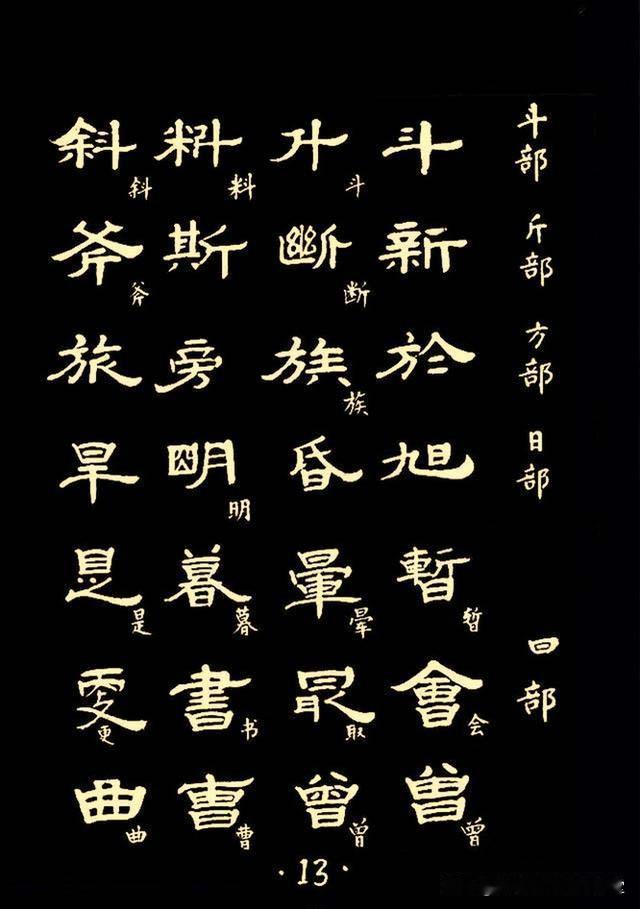 斗部 斗 升 斗 料 料 斜 斜
斤部 新 斷 断 斯 斧 斧
方部 於 族 族 旁 旅
日部 旭 昏 明 明 旱
暫 暂 暈 晕 暮 暮 是 是
曰部 會 会 最 取 書 书 更 更
曾 曾 曾 曾 曹 曹 曲 曲
·13·